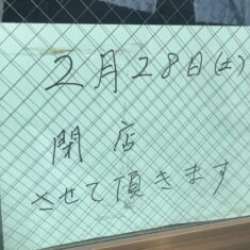 2月28日(土)
閉店
させて頂きます